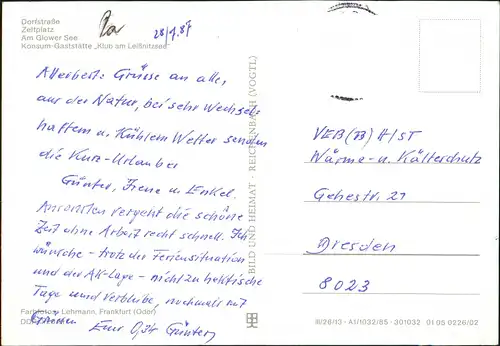 Dorfstraße
Zeltplatz
Am Glower See
Konsum-Gaststätte „Klub am Leißnitzsee"
28/4.87
Allerbeste Grüsse an alle,
aus der Natur, bei sehr Wechsel-
haftem u. Kühlem Wetter senden
die Kurz-Urlauber
Günter, Irene u. Enkel.
Ansonsten vergeht die schöne
Zeit ohne Arbeit recht schnell. Ich
wünsche - trotz der Feriensituation
und der AK-Lage - nicht zu hektische
Tage und verbleibe, nochmals mit
Grüssen Euer Günter
Farbfotos: Lehmann, Frankfurt (Oder)
BILD UND HEIMAT · REICHENBACH (VOGTL)
VEB (B) H/ST
Wärme- u. Kälteschutz
Gehestr. 21
Dresden
8023
III/26/13 · A1/1032/85 · 301032 01 05 0226/02